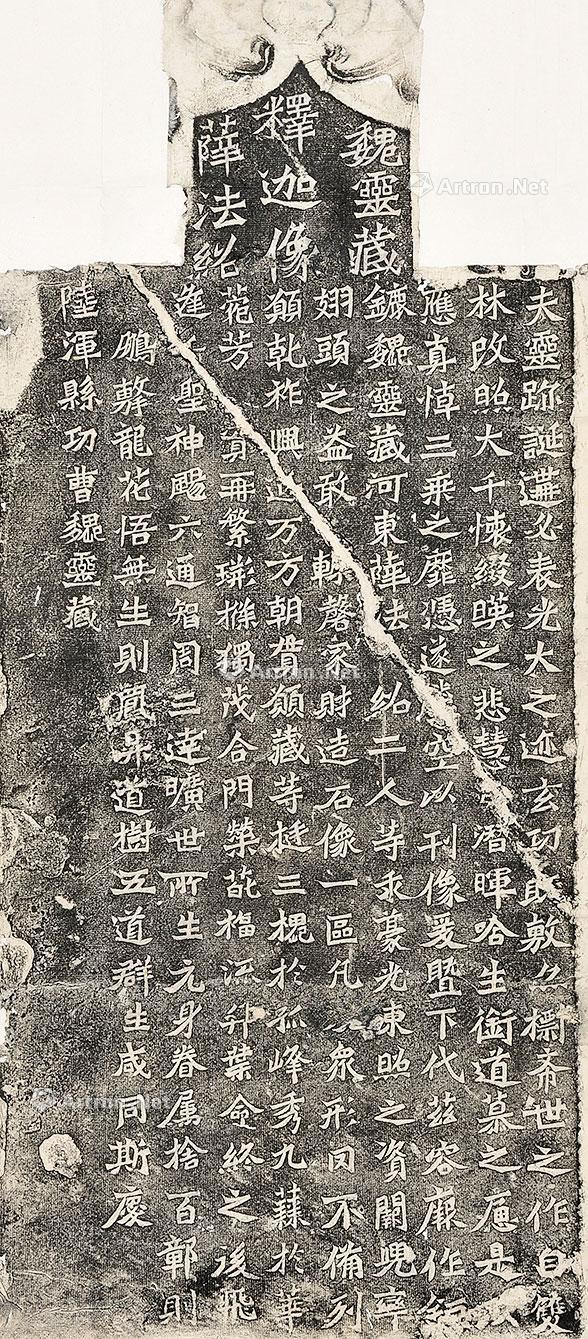 魏靈藏
釋迦像
薛法紹
夫靈跡誕遘必表光大之迹玄功既敷亦標希世之作自雙
林改照大千懷綴暎之悲慧潛暉唅生銜道慕之是以
應真悼三乘之靡憑遂騰空以刊像爰暨下代茲容厥作鉅
鏕魏靈藏河東薛法紹二人等求豪光東照之資闕兜率
翅頭之益敢輒罄家財造石像一區凡衆形罔不備列
願乾祚興延万方朝貫願藏等挺三槐於孤峰秀九蕀於華
苑芳實再繁荊條獨茂合門榮葩福流奕葉命終之後飛
逢聖神颺六通智周三達曠世所生元身眷屬捨百鄣則
鵬擊龍花悟無生則鳳昇道樹五道群生咸同斯慶
陸渾縣功曹魏靈藏
Artron.Net
Artron.Net
Artron.Net